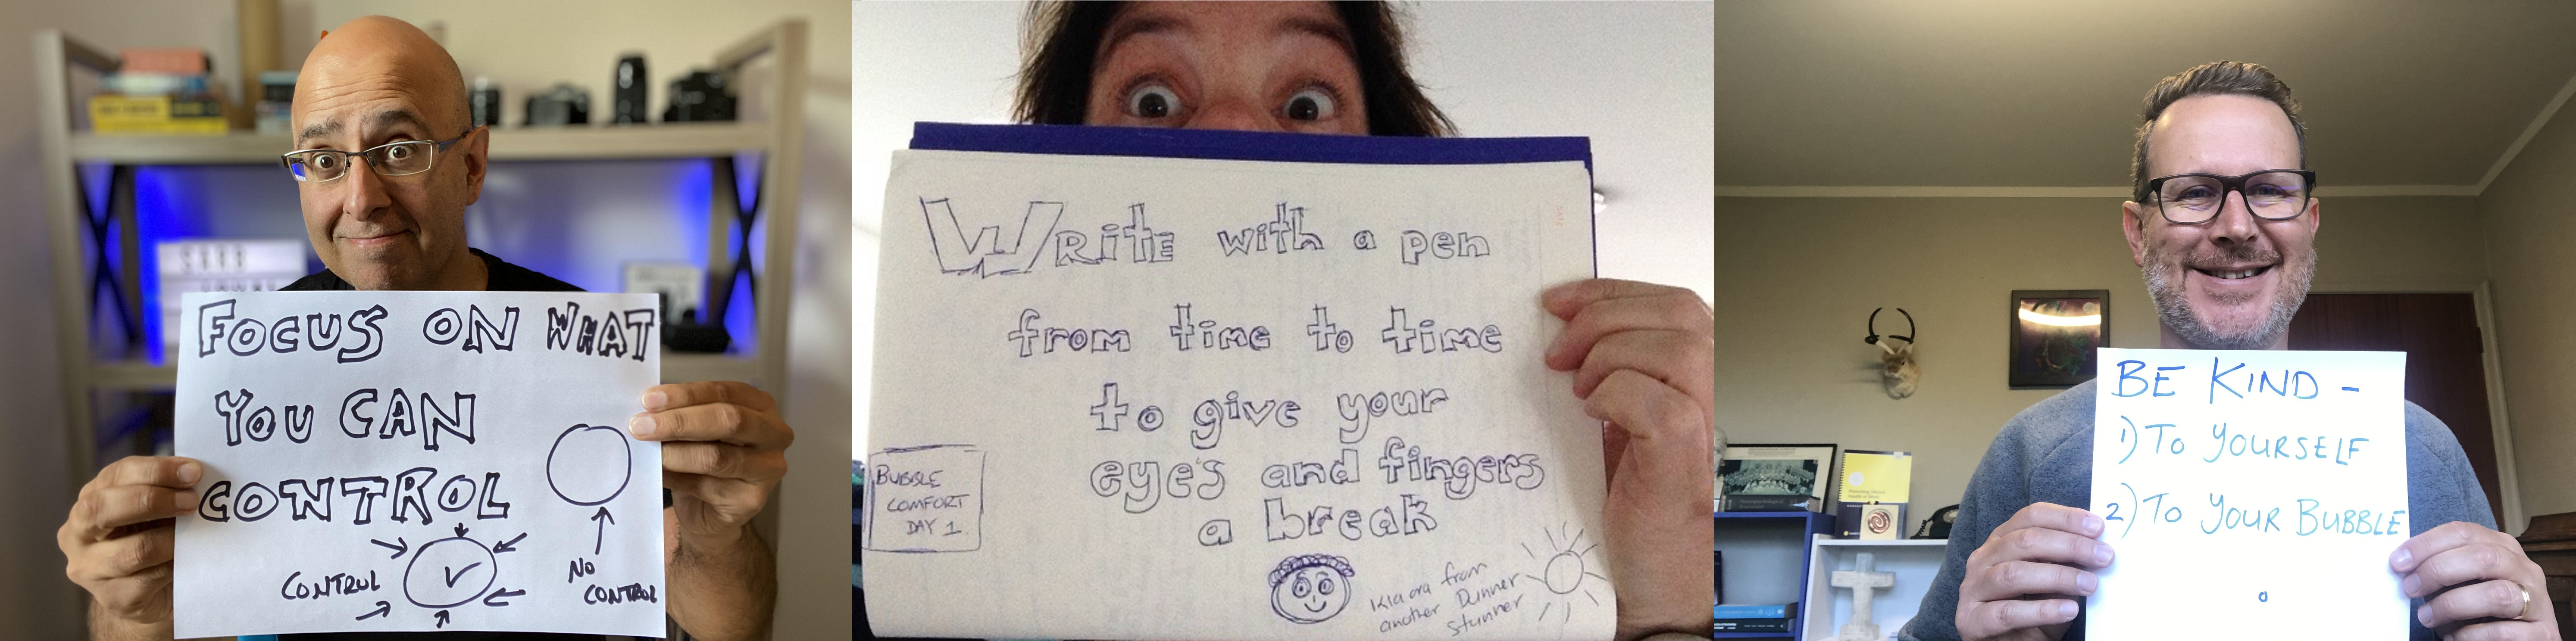 FOCUS ON WHAT
YOU CAN
CONTROL
CONTROL
NO
CONTROL
WRITE with a pen
from time to time
to give your
eye's and fingers
a break
BUBBLE
COMFORT
DAY 1
Kia ora from
another Dunner
stunner
BE KIND -
1) TO YOURSELF
2) TO YOUR BUBBLE